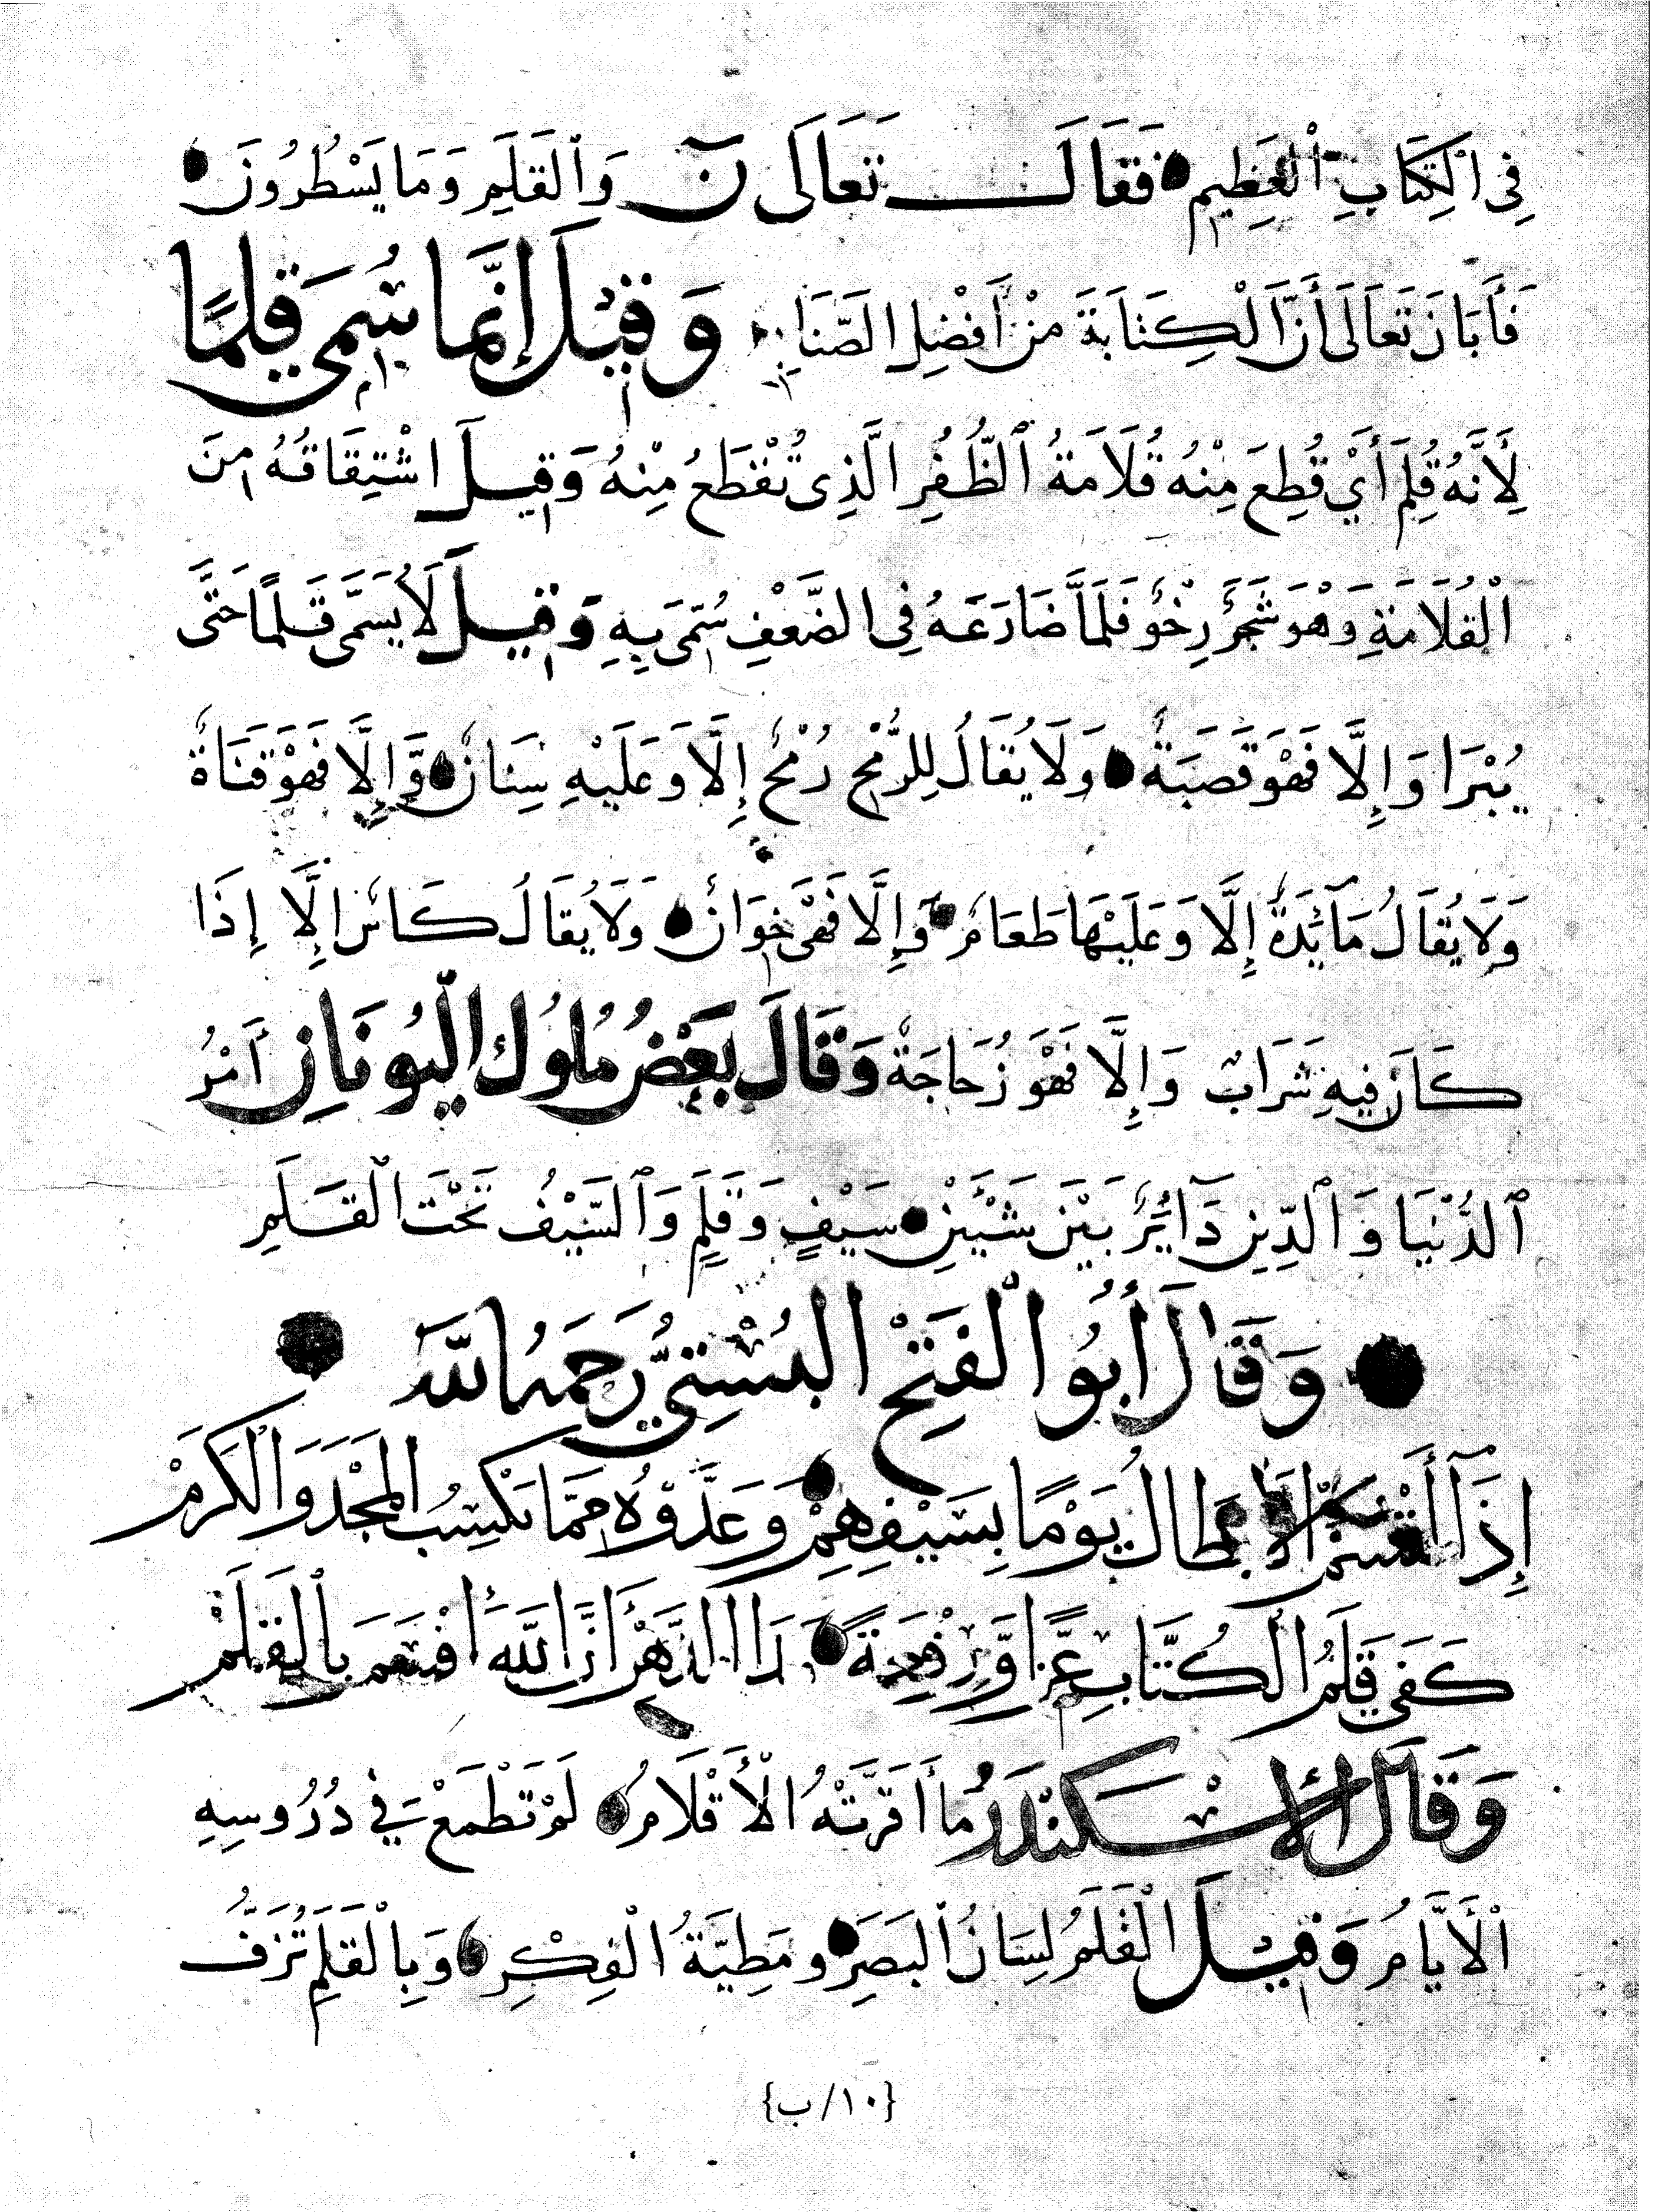 فِي الْكِتَابِ الْعَظِيمِ فَقَالَ تَعَالَى نٓ وَالْقَلَمِ وَمَا يَسْطُرُونَ
فَأَبَانَ تَعَالَى أَنَّ الْكِتَابَةَ مِنْ أَفْضَلِ الصَّنَايِعِ وَقِيلَ إِنَّمَا سُمِّيَ قَلَمًا
لِأَنَّهُ قُلِمَ أَيْ قُطِعَ مِنْهُ قُلَامَةُ الظُّفُرِ الَّذِي تُقْطَعُ مِنْهُ وَقِيلَ اشْتِقَاقُهُ مِنَ
الْقُلَامَةِ وَهْوَ شَجَرٌ رِخْوٌ فَلَمَّا ضَارَعَهُ فِي الضَّعْفِ سُمِّيَ بِهِ وَقِيلَ لَا يُسَمَّى قَلَمًا حَتَّى
يُبْرَا وَإِلَّا فَهْوَ قَصَبَةٌ وَلَا يُقَالُ لِلرُّمْحِ رُمْحٌ إِلَّا وَعَلَيْهِ سِنَانٌ وَّإِلَّا فَهْوَ قَنَاةٌ
وَلَا يُقَالُ مَآئِدَةٌ إِلَّا وَعَلَيْهَا طَعَامٌ وَإِلَّا فَهْيَ خِوَانٌ وَلَا يُقَالُ كَاسٌ إِلَّا إِذَا
كَانَ فِيهِ شَرَابٌ وَإِلَّا فَهْوَ زُجَاجَةٌ وَقَالَ بَعْضُ مُلُوكِ الْيُونَانِ أَمْرُ
الدُّنْيَا وَالدِّينِ دَآئِرٌ بَيْنَ شَيْئَيْنِ سَيْفٍ وَقَلَمٍ وَالسَّيْفُ تَحْتَ الْقَلَمِ
وَقَالَ أَبُو الْفَتْحِ الْبُسْتِيُّ رَحِمَهُ اللَّهُ
إِذَآ أَقْسَمَ الْأَبْطَالُ يَوْمًا بِسَيْفِهِمْ وَعَدُّوْهُ مِمَّا يَكْسِبُ الْمَجْدَ وَالْكَرَمْ
كَفَى قَلَمُ الْكُتَّابِ عِزًّا وَّرِفْعَةً مَدَا الدَّهْرِ أَنَّ اللَّهَ أَقْسَمَ بِالْقَلَمْ
وَقَالَ الْأَسْكَنْدَرُ مَا أَقَرَّتْهُ الْأَقْلَامُ لَمْ تَطْمَعْ فِي دُرُوسِهِ
الْأَيَّامُ وَقِيلَ الْقَلَمُ لِسَانُ الْبَصَرِ وَمَطِيَّةُ الْفِكْرِ وَبِالْقَلَمِ تُزَفُّ
{١٠/ب}